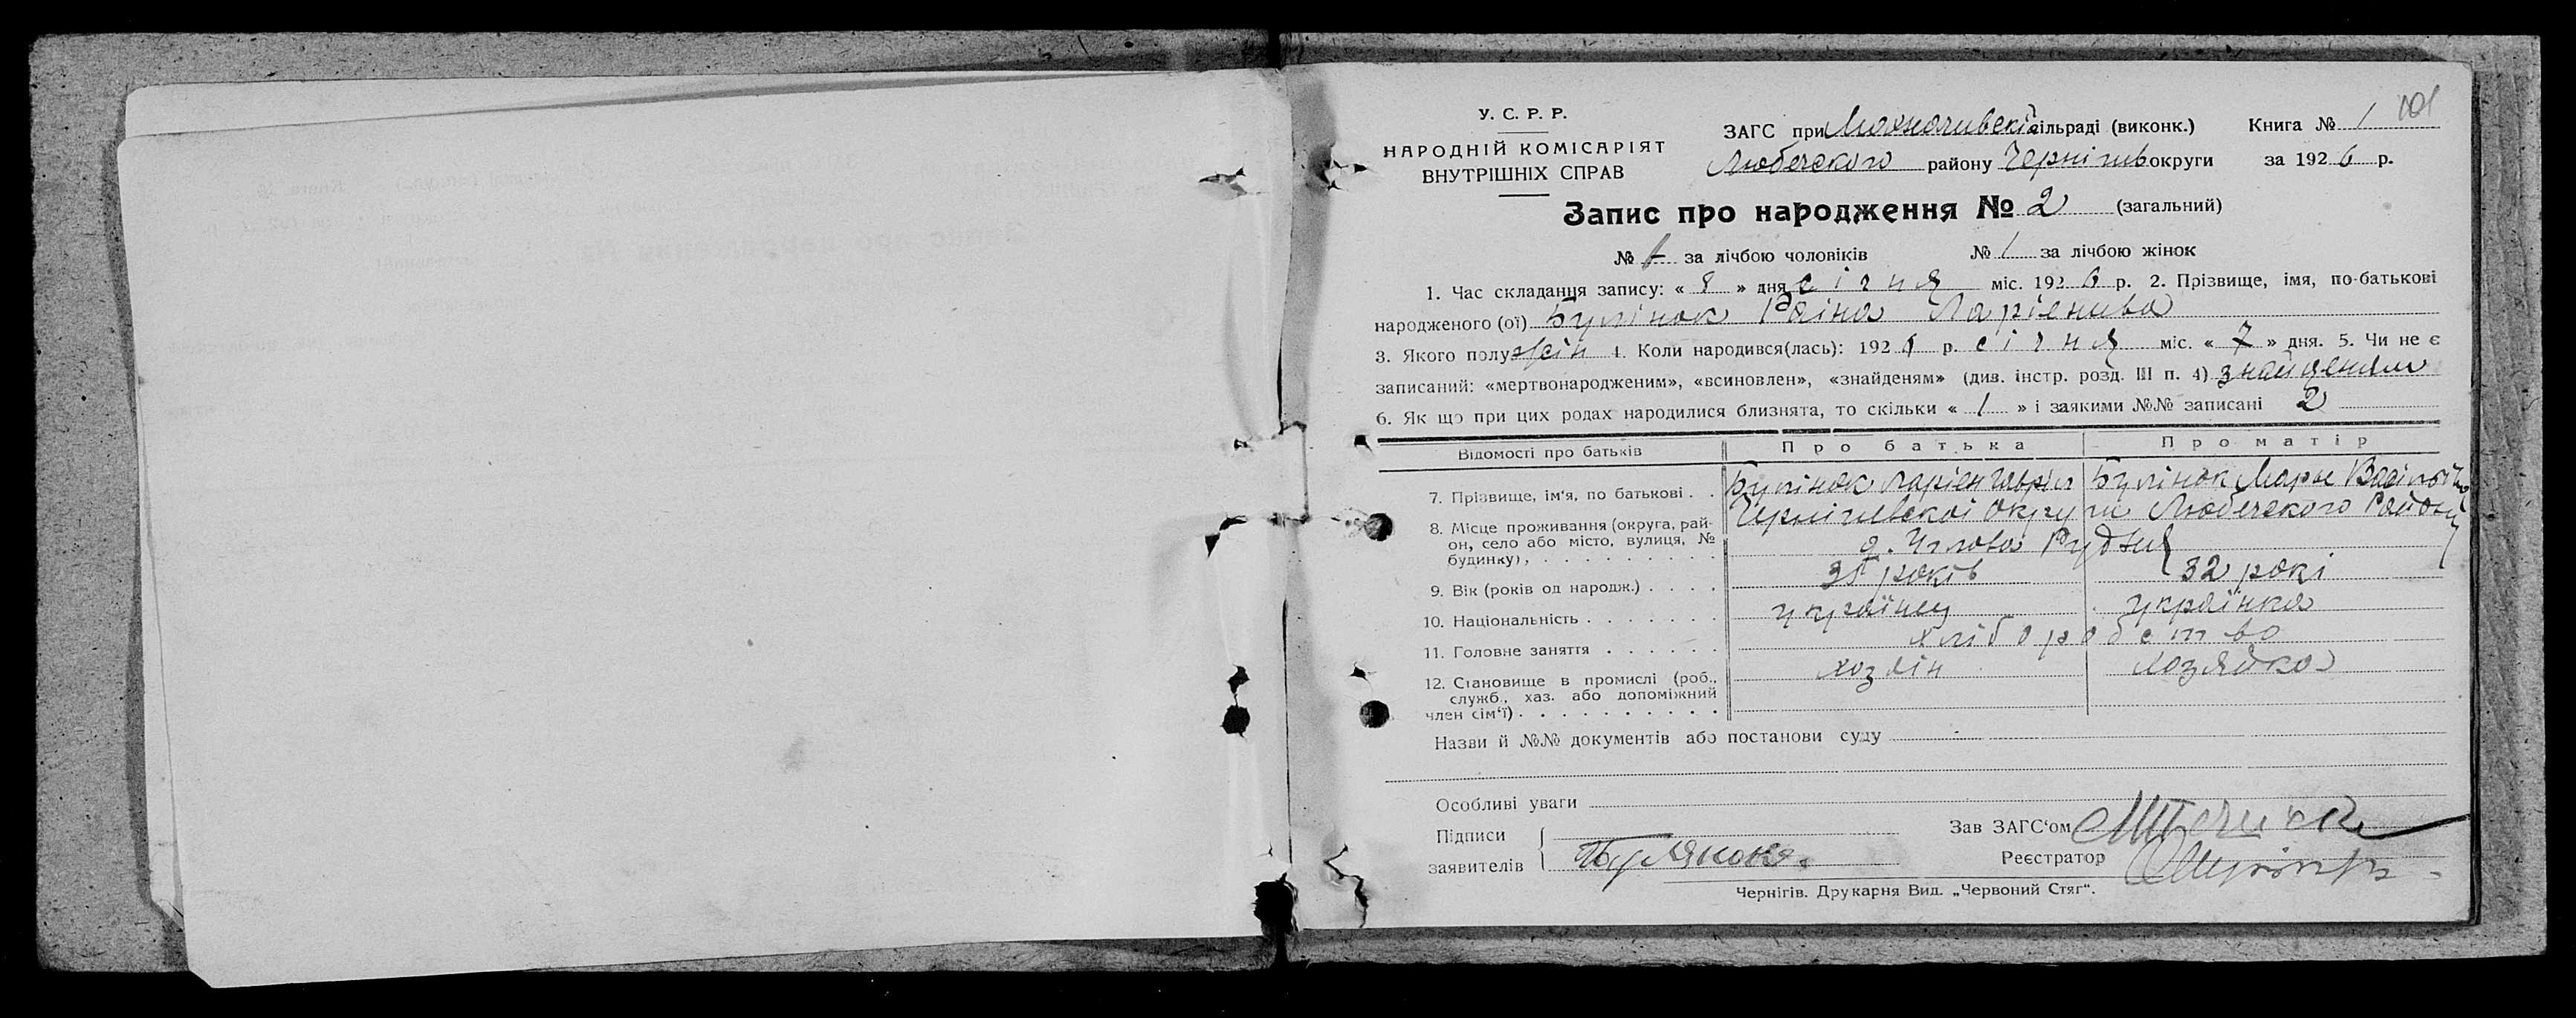 101
У. С. Р. Р.
НАРОДНІЙ КОМІСАРІЯТ
ВНУТРІШНІХ СПРАВ
ЗАГС при сільраді (виконк.) Книга № 1
Любечского району Чернігів округи за 1926 р.
Запис про народження № 2 (загальний)
№ за лічбою чоловіків № 1 за лічбою жінок
1. Час складання запису: « 8 » дня січня міс. 1926 р. 2. Прізвище, імя, по-батькові
народженого (ої) Булінок Раіна Ларіенива
3. Якого полу жін 4. Коли народився(лась): 192 р. січня міс. « 7 » дня. 5. Чи не є
записаний: «мертвонародженим», «всиновлен», «знайденям» (див. інстр. розд. III п. 4) знайденям
6. Як що при цих родах народилися близнята, то скільки « 1 » і заякими №№ записані 2
Відомості про батьків Про батька Про матір
7. Прізвище, ім'я, по батькові . . Булінок Ларіен Гаврил Булінок Марьє
8. Місце проживання (округа, рай- Чернігивскоі Округи Любечского Району
он, село або місто, вулиця, № Рудня
будинку), . . . . . . . . .
9. Вік (років од народж.) . . . . років 32 рокі
10. Національність . . . . . . . українец українка
11. Головне заняття . . . . . . хліборобство
12. Становище в промислі (роб., хозяін хозяйка
служб., хаз. або допоміжний
член сім'ї) . . . . . . . . . .
Назви й №№ документів або постанови суду
Особливі уваги
Підписи Зав ЗАГС'ом
заявителів Реєстратор
Чернігів. Друкарня Вид. „Червоний Стяг“.